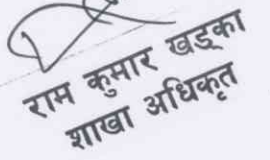 राम कुमार खड्का
शाखा अधिकृत